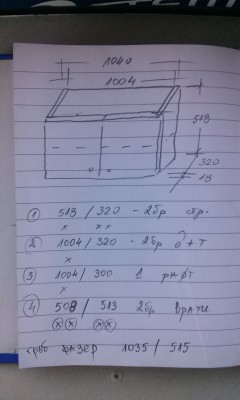 1040
1004
518
320
18
① 518 / 320 - 2бр стр.
x xx
② 1004 / 320 - 2бр
x
③ 1004 / 300 1 рафт
x
④ 508 / 513 2бр врати
ⓧⓧ ⓧⓧ
гръб фазер 1035 / 515